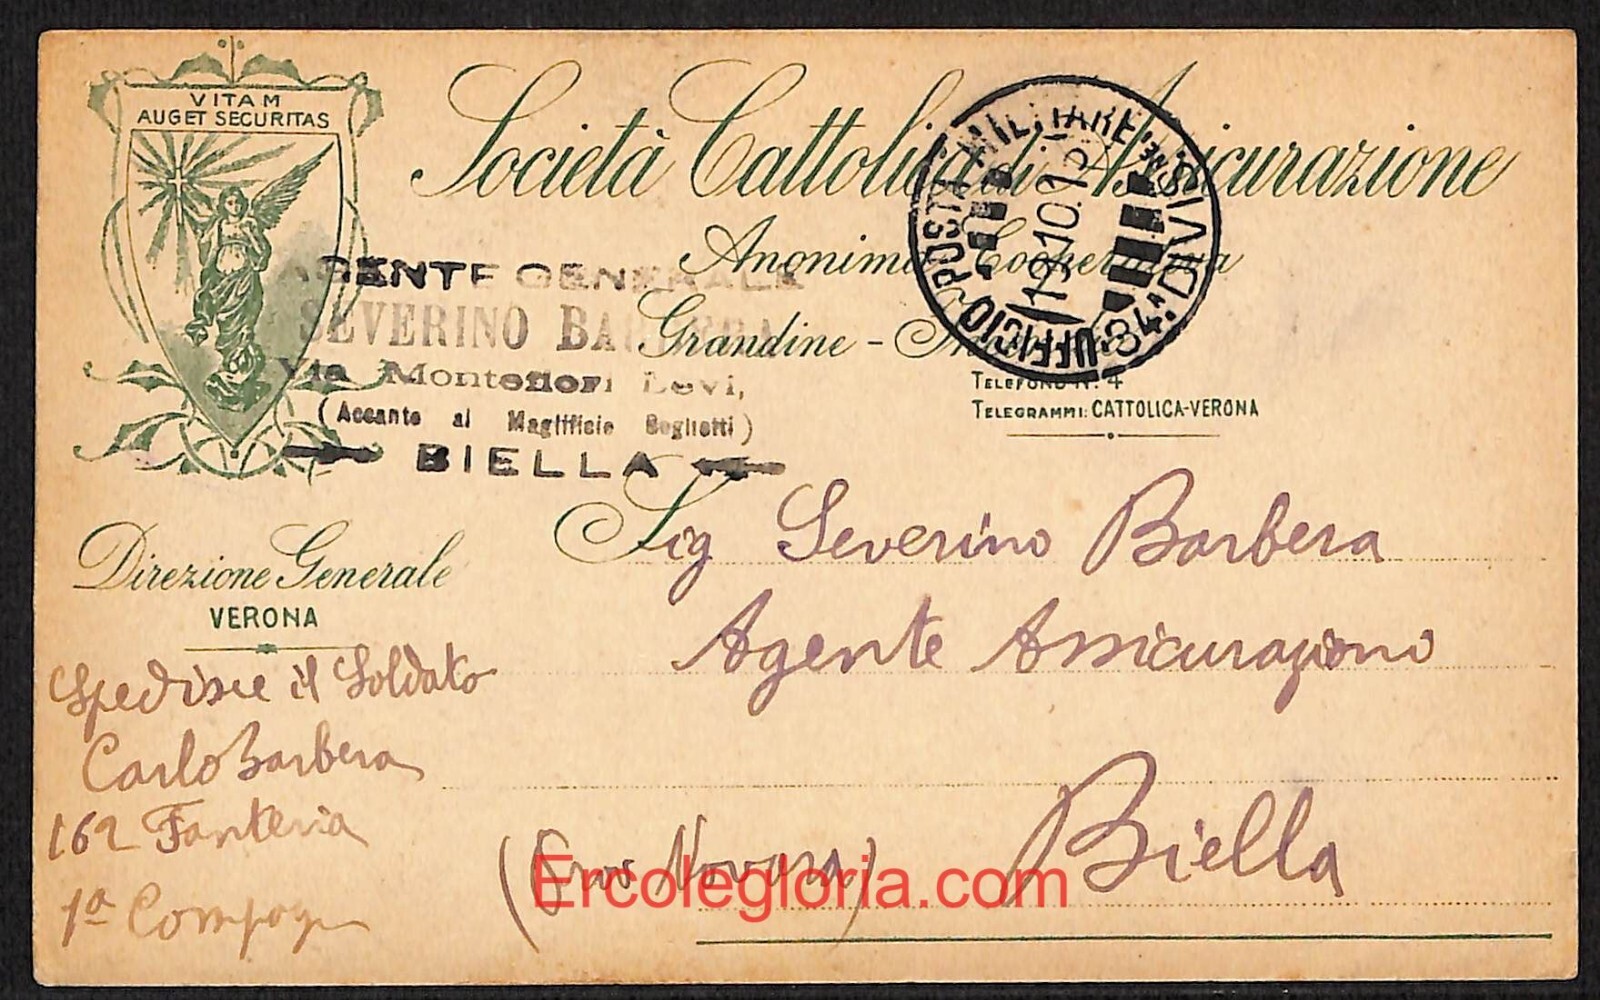 VITAM
AUGET SECURITAS
Società Cattolica di Assicurazione
Anonima Cooperativa
Grandine -
TELEFONO N. 4
TELEGRAMMI: CATTOLICA-VERONA
UFFICIO POSTA MILITARE
34ª DIVISIONE
AGENTE GENERALE
SEVERINO BARBERA
Via Montefiori Levi,
(Accanto al Maglificio Boglietti)
BIELLA
Direzione Generale
VERONA
Sig Severino Barbera
Agente Assicurazioni
Biella
(Prov Novara)
Spedisce il Soldato
Carlo Barbera
162 Fanteria
1ª Compag
Ercolegloria.com